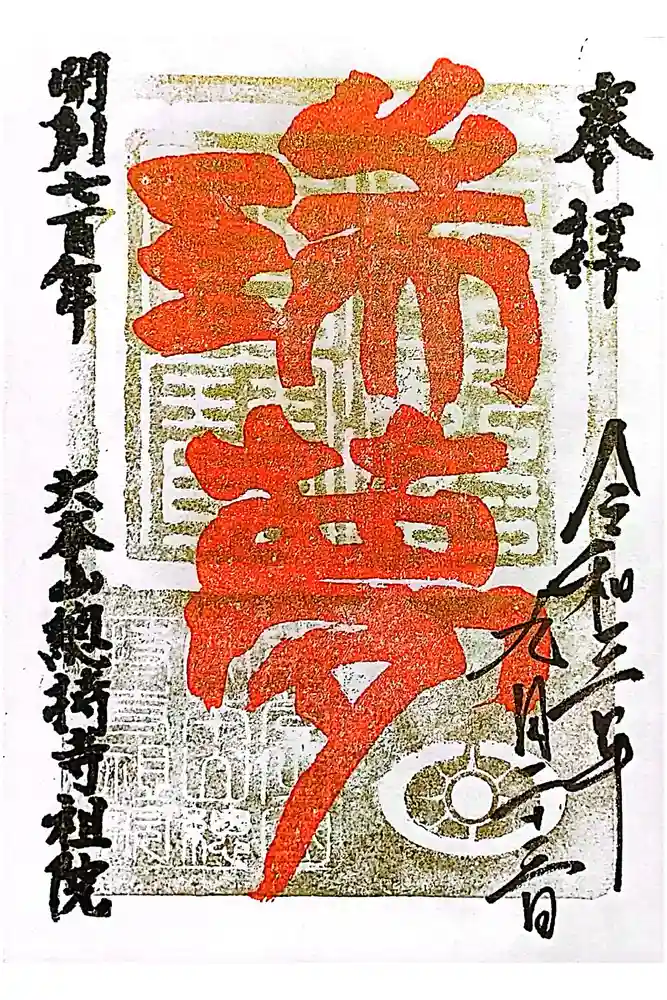 奉拝
令和三年
九月二十六日
瑞夢
開創七百年
大本山總持寺祖院